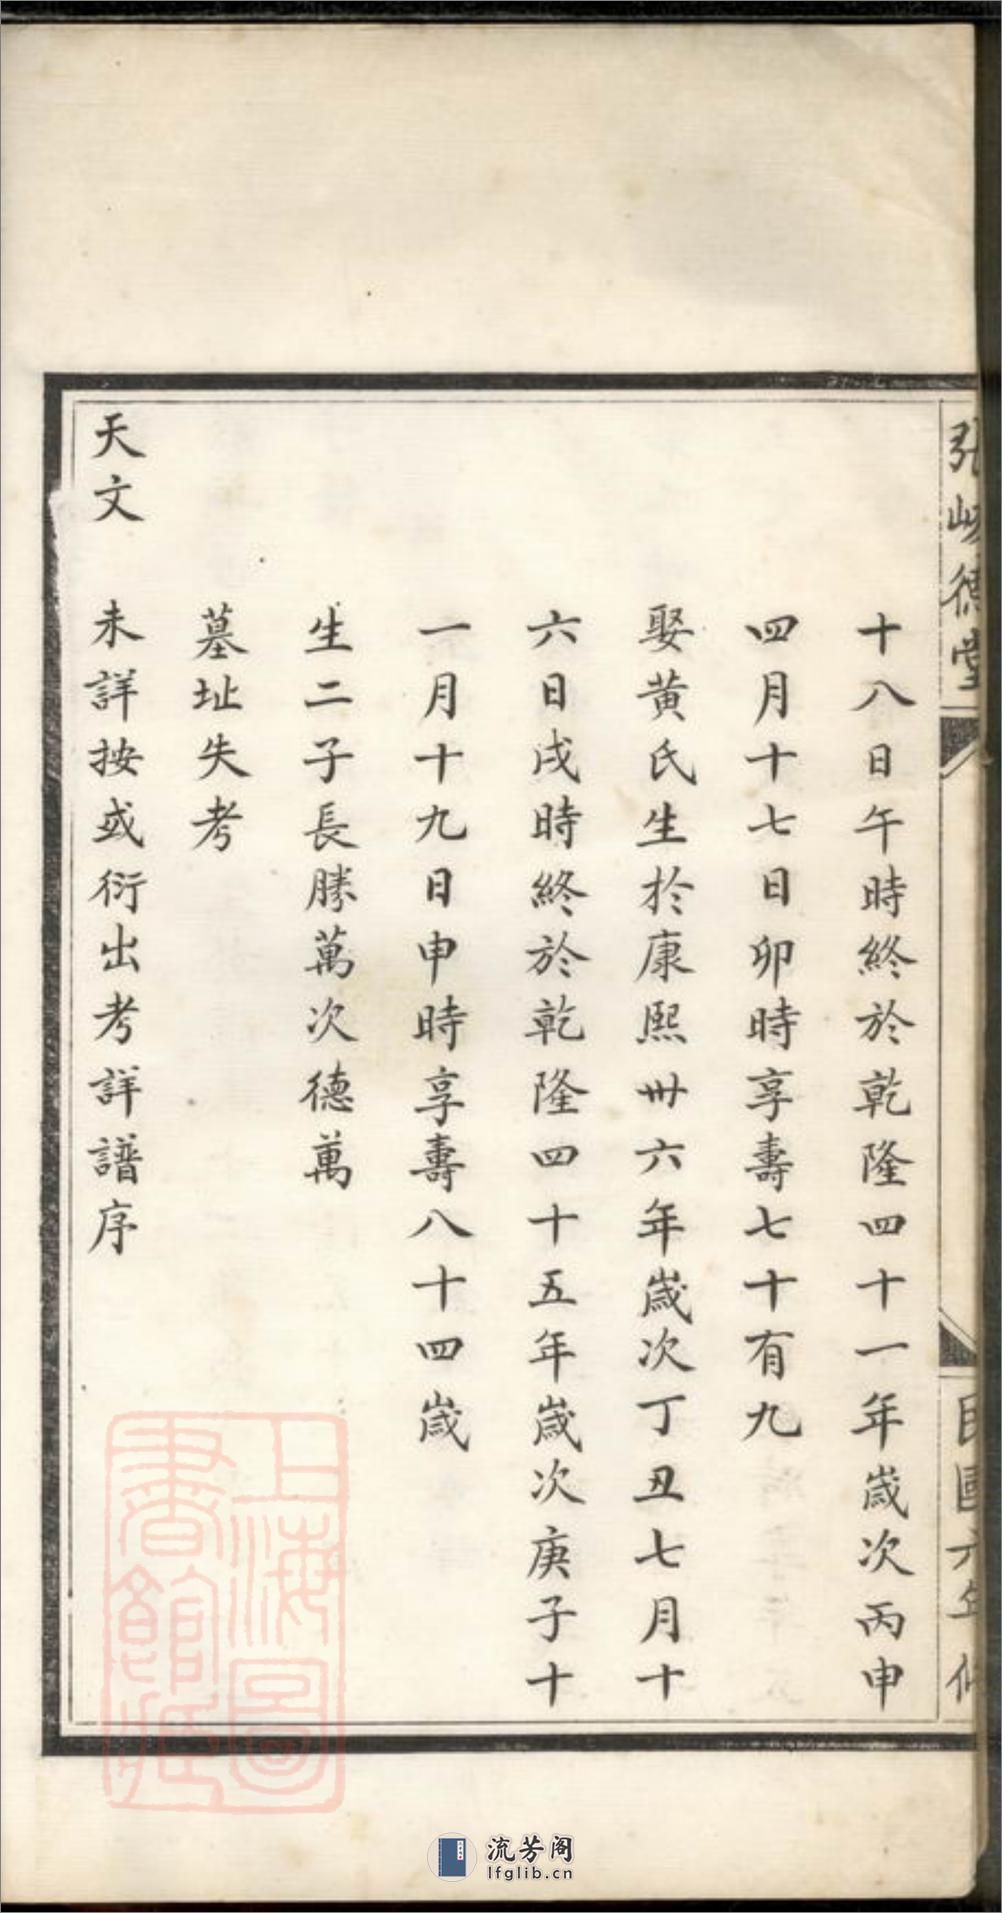 十八日午時終於乾隆四十一年歲次丙申
四月十七日卯時享壽七十有九
娶黄氏生於康熙卅六年歲次丁丑七月十
六日戌時終於乾隆四十五年歲次庚子十
一月十九日申時享壽八十四歲
生二子長勝萬次德萬
墓址失考
天文　未詳按或衍出考詳譜序
德堂
民國六年修
上海圖書館藏
流芳阁
lfglib.cn